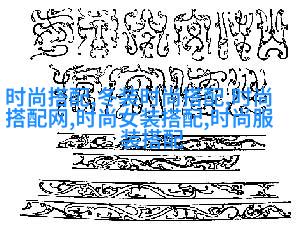 时尚搭配,冬装时尚搭配,时尚
搭配网,时尚女装搭配,时尚服
装搭配